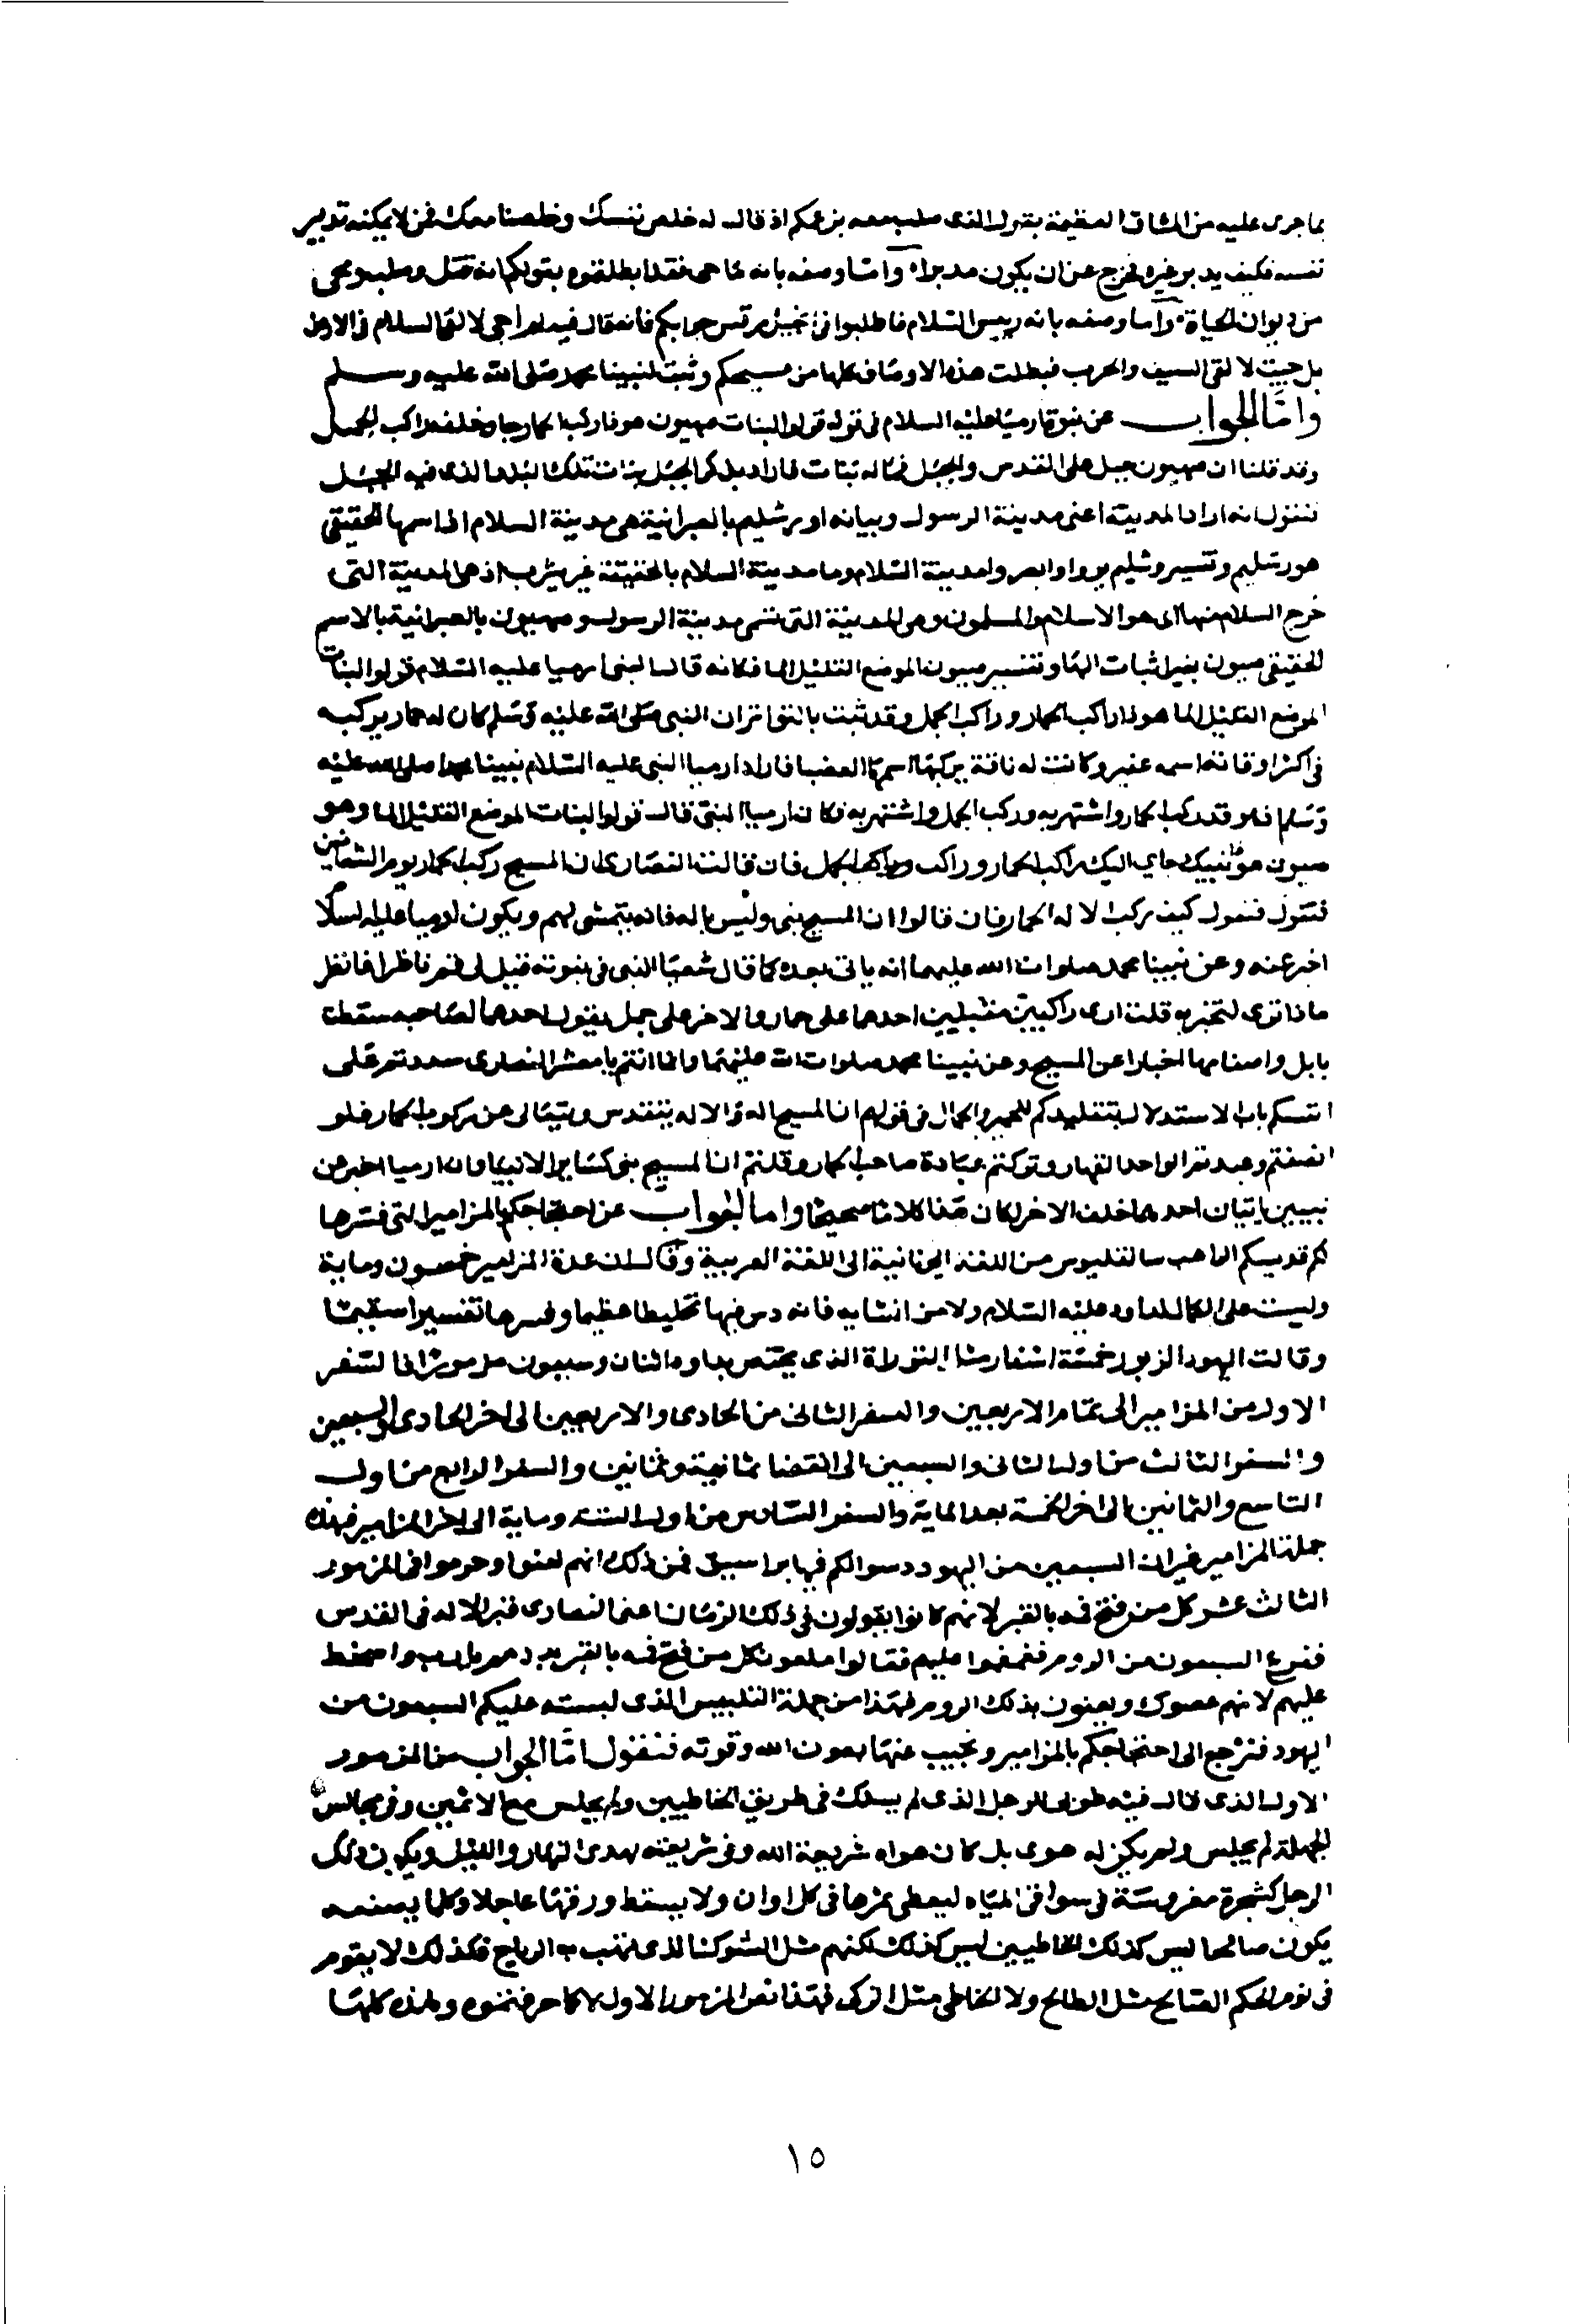 بما جرى عليه من المشاق العظيمة بقول الذى صلب معه بزعمكم اذ قال له خلص نفسك وخلصنا معك فمن لا يمكنه تدبير
نفسه فكيف يدبر غيره فخرج عن ان يكون مدبرا وأما وصفه بانه ماحى فقد ابطلتموه بقولكم انه قتل وصلب ومحى
من ديوان الحياة وأما وصفه بانه رييس السلام فاطلبوا فى انجيل مرقس جوابكم فانه قال فيه لم اجى لالقى السلام فى الارض
بل جيت لالقى السيف والحرب فبطلت هذه الاوصاف كلها من مسيحكم وثبت لنبينا محمد صلى الله عليه وسلم
واما الجواب عن نبوة ارميا عليه السلام فى قوله قولوا لبنات صهيون هوذا راكب الحمار جا وخلفه راكب الجمل
وقد قلنا ان صهيون جبل على القدس والجبل فما له بنات فاراد بذكر الجبل بنات تلك البلد الذى فيه الجبل
فنقول انه اراد المدينة اعنى مدينة الرسول وبيانه اورشليم بالعبرانية هى مدينة السلام انما اسمها الحقيقى
هورشليم وتفسير وشليم بروا وابصروا مدينة السلام وما مدينة السلام بالحقيقة غير يثرب اذ هى المدينة التى
خرج السلام منها اى هو الاسلام والمسلمون وهى المدينة التى تسمى مدينة الرسول وصهيون بالعبرانية بالاسم
الحقيقى صيون بغير اثبات الها وتفسير صيون الموضع القليل الما فكانه قال النبى ارميا عليه السلام قولوا لبنات
الموضع القليل الما هوذا راكب الحمار وراكب الجمل وقد ثبت بالتواتر ان النبى صلى الله عليه وسلم كان له حمار يركبه
فى اكثر اوقاته اسمه عفير وكانت له ناقة يركبها اسمها العضبا فاراد ارميا النبى عليه السلام نبينا محمدا صلى الله عليه
وسلم فهو قد ركب الحمار واشتهر به وركب الجمل واشتهر به فكان ارميا النبى قال قولوا لبنات الموضع القليل الما وهو
صيون هو نبيك جاى اليك راكب الحمار وراكب الجمل فان قالت النصارى ان المسيح ركب الحمار يوم الشعانين
فنقول كيف ركب الاله الحمار فان قالوا ان المسيح نبى وليس باله فانه يتمشى لهم ويكون ارميا عليه السلام
اخبر عنه وعن نبينا محمد صلوات الله عليهما انه ياتى بعده كما قال شعيا النبى فى نبوته قيل لى قم ناظرا فانظر
ماذا ترى لتخبر به قلت ارى راكبين مقبلين احدهما على حمار والاخر على جمل يقول احدهما لصاحبه سقطت
بابل واصنامها اخبارا عن المسيح وعن نبينا محمد صلوات الله عليهما وانما انتم يا معشر النصارى سددتم على
انفسكم باب الاستدلال بتقليدكم للحمير والجمال فى قولهم ان المسيح اله والاله يتقدس ويتعالى عن ركوب الحمار فلو
انصفتم وعبدتم الواحد القهار وتركتم عبادة صاحب الحمار وقلتم ان المسيح نبى كساير الانبيا وان ارميا اخبر عن
نبيين اتيان احدهما خلف الاخر لكان هذا كلاما صحيحا واما الجواب عن احتجاجكم بالمزامير التى فسرها
لكم قديسكم الراهب من اللغة اليونانية الى اللغة العربية وقال ان عدة المزامير خمسون وماية
وليست على الكمال لداود عليه السلام ولا من انشايه فانه دس فيها تخليطا عظيما وفسرها تفسيرا سقيما
وقالت اليهود الزبور خمسة اسفار مثل التوراة الذى يختص بداود اثنان وسبعون مزمورا فالسفر
الاول من المزامير الى تمام الاربعين والسفر الثانى من الحادى والاربعين الى اخر الحادى والسبعين
والسفر الثالث من اول الثانى والسبعين الى انقضا ثمانية وثمانين والسفر الرابع من اول
التاسع والثمانين الى اخر الخمسة بعد الماية والسفر السادس من اول الستة وماية الى اخر المزامير فهذه
جملة المزامير غير ان السبعين من اليهود دسوا لكم فيها فمن ذلك انهم لعنوا وحرموا فى المزمور
الثالث عشر كل من فتح فمه بالقبر لانهم كانوا يقولون فى ذلك الزمان اعنى النصارى قبر الاله فى القدس
ففزع السبعون من الروم فقالوا ملعون كل من فتح فمه بالقبر واسخط
عليهم لانهم عصوك ويعنون بذلك الروم فهذا من جملة التلبيس الذى لبسته عليكم السبعون من
اليهود فنرجع الى احتجاجكم بالمزامير ونجيب عنها بعون الله وقوته فنقول اما الجواب عن المزمور
الاول الذى قال فيه طوبى للرجل الذى لم يسلك فى طريق الخاطيين ولم يجلس مع الاثمين وفى مجالس
الجهلة لم يجلس ولم يكن له هوى بل كان هواه شريعة الله وفى شريعته يهدى النهار والليل ويكون ذلك
الرجل كشجرة مغروسة فى سواقى المياه ليعطى ثمرها فى كل اوان ولا يسقط ورقها عاجلا وكلما يصنعه
يكون صالحا ليس كذلك الخاطيين ليس كذلك لكنهم مثل الشوك الذى تذهب به الرياح فكذلك لا يقوم
فى يوم الحكم الصالح مثل الطالح ولا الخاطى مثل الزكى فهذا نص المزمور الاول لا كما حرفتموه ولهذه كلها
١٥